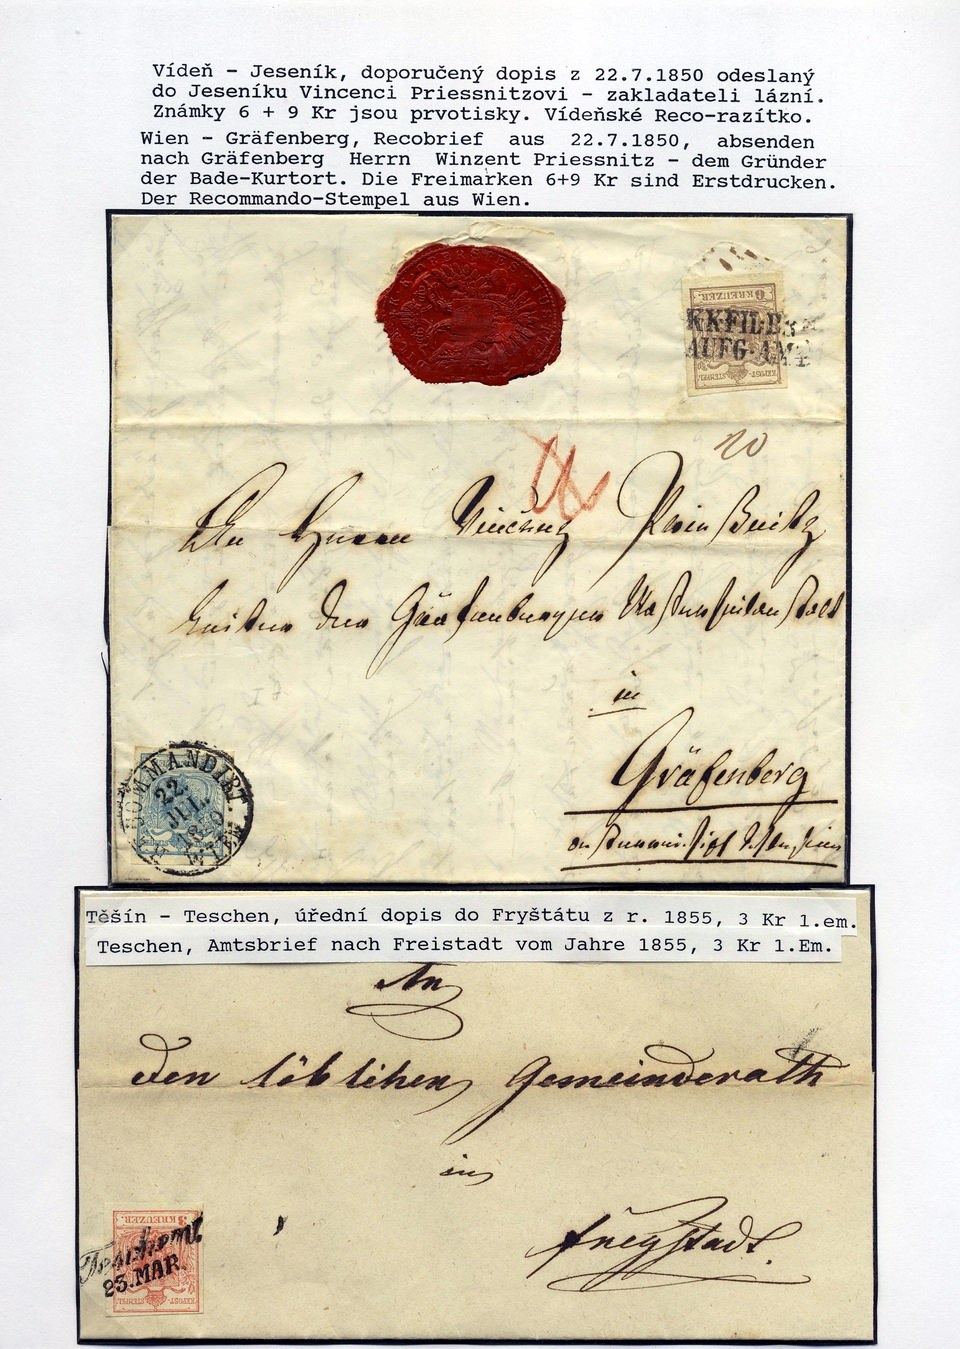 Vídeň - Jeseník, doporučený dopis z 22.7.1850 odeslaný
do Jeseníku Vincenci Priessnitzovi - zakladateli lázní.
Známky 6 + 9 Kr jsou prvotisky. Vídeňské Reco-razítko.
Wien - Gräfenberg, Recobrief aus 22.7.1850, absenden
nach Gräfenberg Herrn Winzent Priessnitz - dem Gründer
der Bade-Kurtort. Die Freimarken 6+9 Kr sind Erstdrucken.
Der Recommando-Stempel aus Wien.
6 KREUZER
K.K.FIL.B
AUFG.AMT
KKPOST-STEMPEL
20
An Herrn Vincenz Prießnitz
der Gräfenberger Wasserheilanstalt
in
Gräfenberg
RECOMMANDIRT
22.
JUL.
1850
WIEN
9
Těšín - Teschen, úřední dopis do Fryštátu z r. 1855, 3 Kr 1.em.
Teschen, Amtsbrief nach Freistadt vom Jahre 1855, 3 Kr 1.Em.
An
Den löblichen Gemeinderath
in
Freystadt.
3 KREUZER
Teschen
23.MAR.
KKPOST-STEMPEL